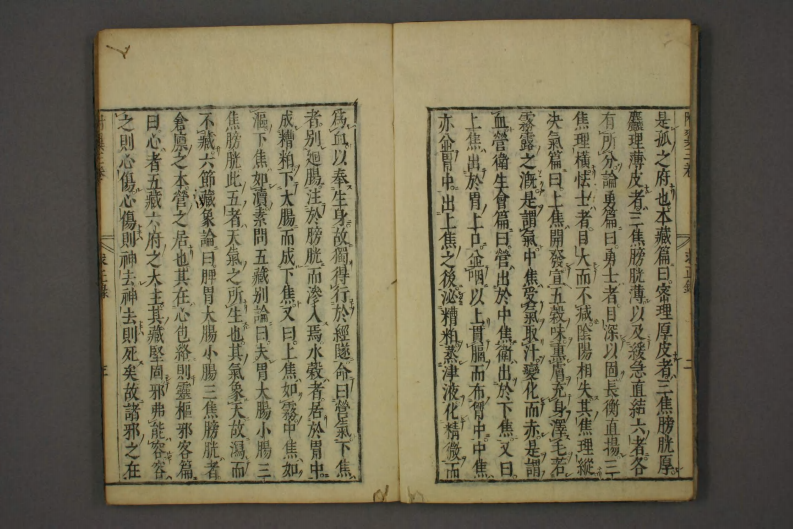 是孤之府也本藏篇曰密理厚皮者三焦膀胱厚
麤理薄皮者三焦膀胱薄以及緩急直結六者各
有所分論勇篇曰勇士者目深以固長衡直揚三
焦理橫怯士者目大而不減陰陽相失其焦理縱
决氣篇曰上焦開發宣五穀味熏膚充身澤毛若
霧露之溉是謂氣中焦受氣取汁變化而赤是謂
血營衛生會篇曰營出於中焦衛出於下焦又曰
上焦出於胃上口並咽以上貫膈而布胷中中焦
亦並胃中出上焦之後泌糟粕蒸津液化精微而
爲血以奉生身故獨得行於經隧命曰營氣下焦
者别廻腸注於膀胱而滲入焉水穀者居於胃中
成糟粕下大腸而成下焦又曰上焦如霧中焦如
漚下焦如瀆素問五藏别論曰夫胃大腸小腸三
焦膀胱此五者天氣之所生也其氣象天故瀉而
不藏六節藏象論曰脾胃大腸小腸三焦膀胱者
倉廩之本營之居也其在心包絡則靈樞邪客篇
曰心者五藏六府之大主其藏堅固邪弗能容容
之則心傷心傷則神去神去則死矣故諸邪之在